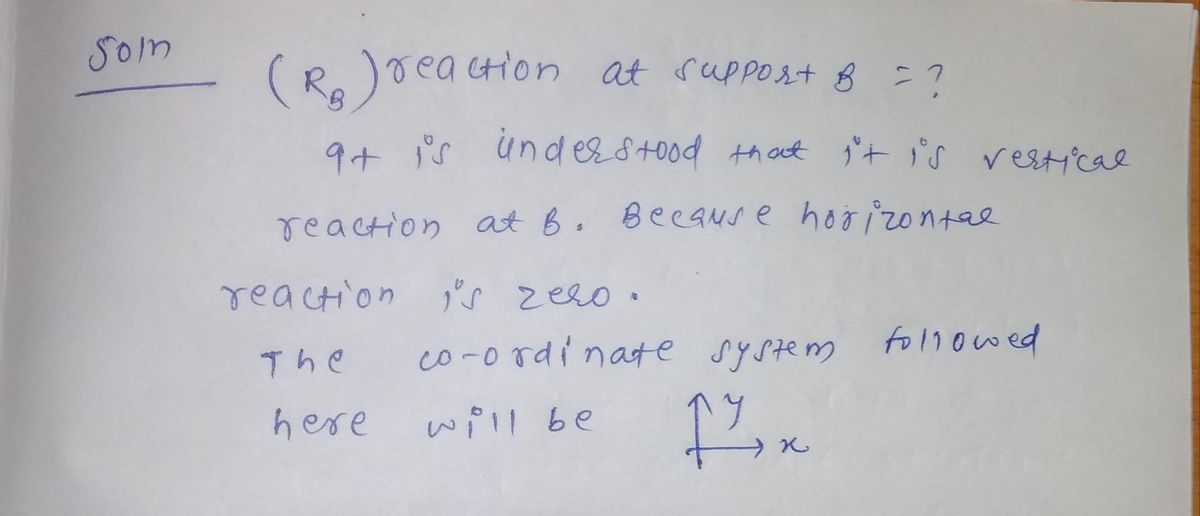 Soln
(R_B) reaction at support B = ?
It is understood that it is vertical
reaction at B. Because horizontal
reaction is zero.
The co-ordinate system followed
here will be y x